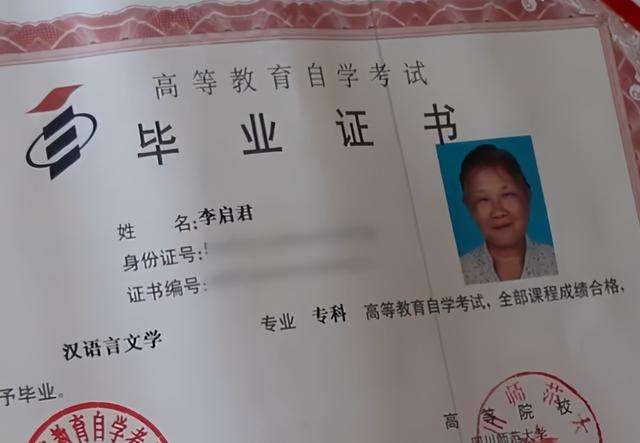 高等教育自学考试
毕业证书
姓 名:李启君
身份证号:
证书编号:
专业 专科 高等教育自学考试,全部课程成绩合格,
汉语言文学
予毕业。
高等院校
四川师范大学
教育自学考
师范大